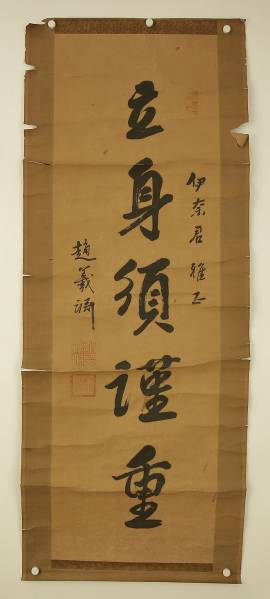 伊奈君雅正
立身須謹重
趙義淵